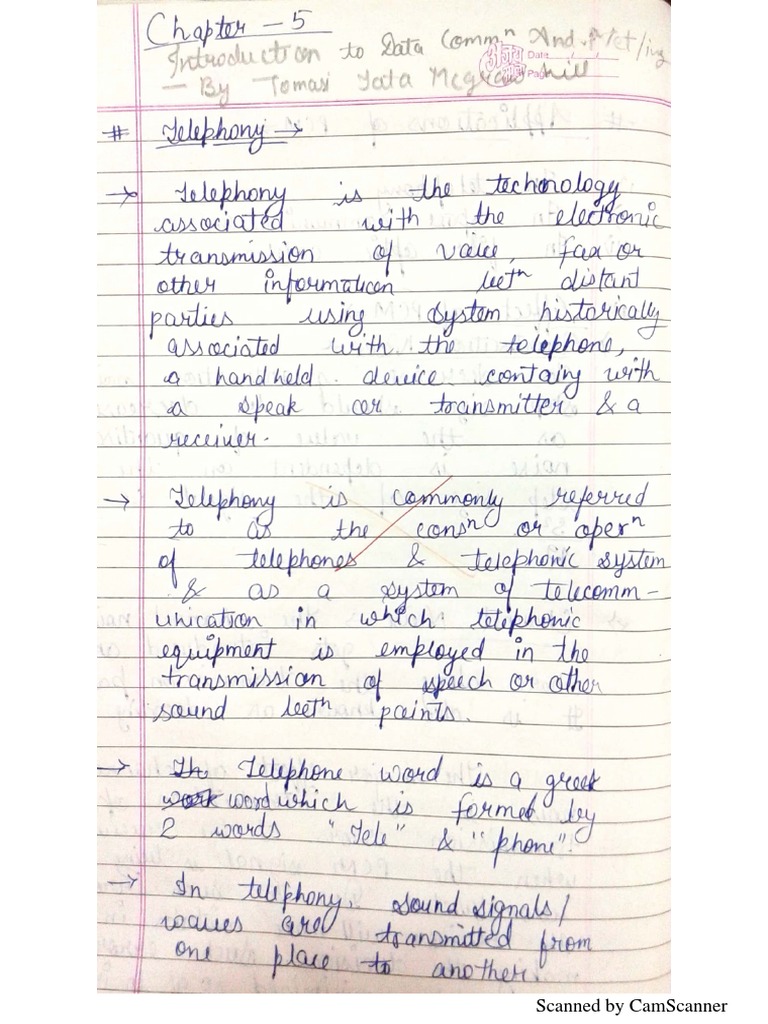 Chapter - 5
Introduction to Data Commn And
- By Tomasi Tata Mcgraw hill
Date
Page
# Telephony →
→ Telephony is the technology
associated with the electronic
transmission of voice, fax or
other information betn distant
parties using system historically
associated with the telephone,
a handheld device containg with
a speak or transmitter & a
receiver.
→ Telephony is commonly referred
to as the consn or opern
of telephones & telephonic system
& as a system of telecomm-
unication in which telephonic
equipment is employed in the
transmission of speech or other
sound betn points.
→ Th Telephone word is a greek
work word which is formed by
2 words "Tele" & "phone".
→ In telephony, sound signals/
waves are transmitted from
one place to another
Scanned by CamScanner